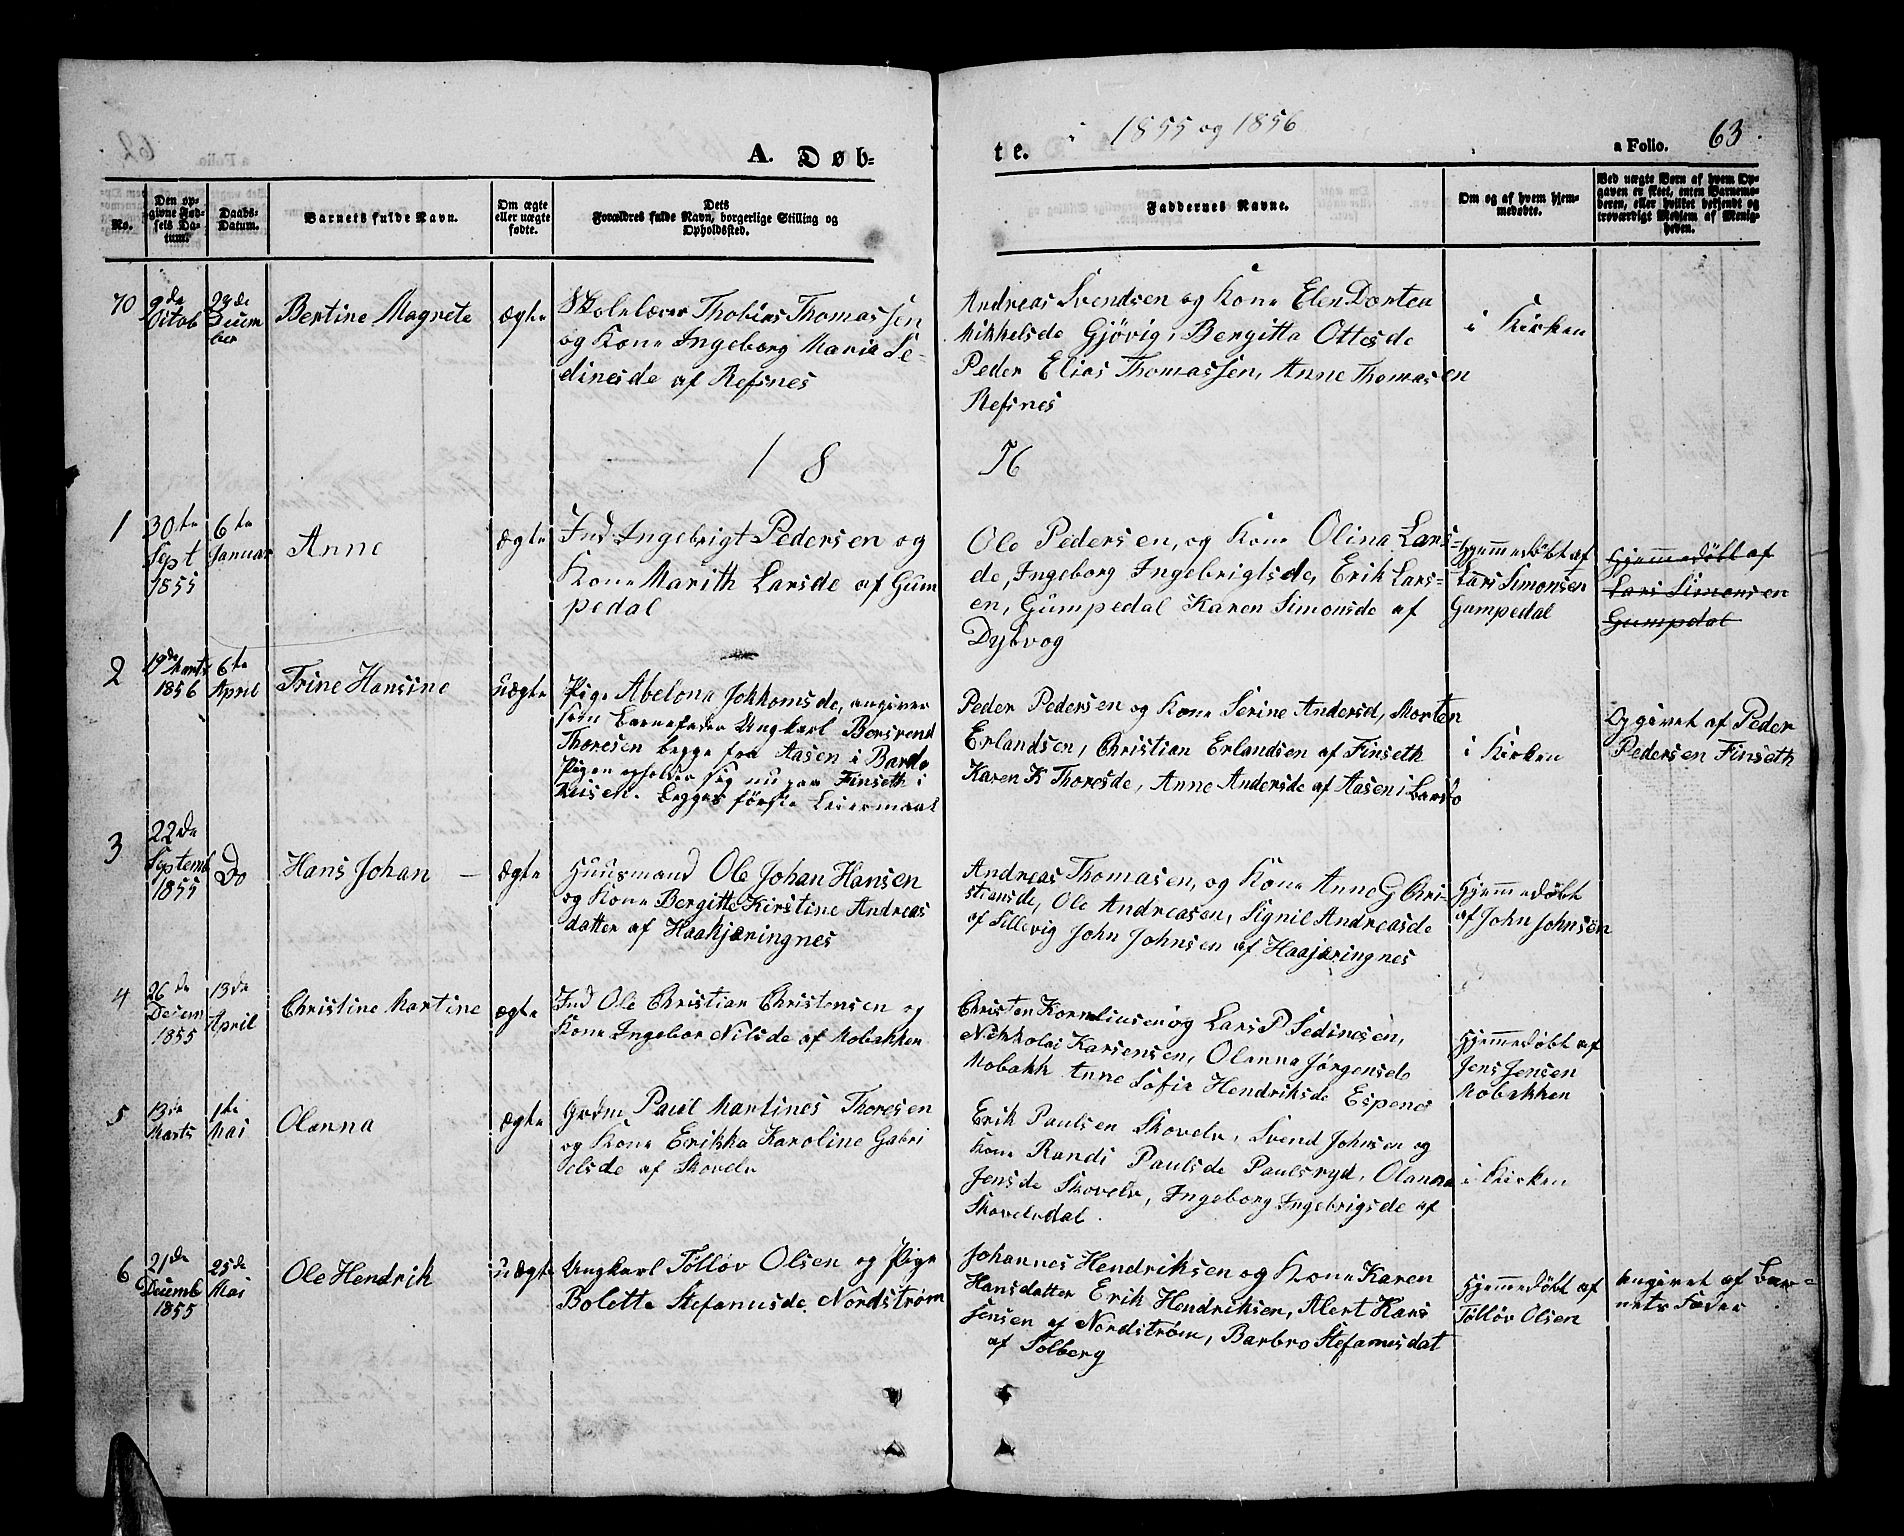 A. Døb-
te.
i 1855 og 1856
a Folio. 63
No.
Den op-
givne Fød-
sels Da-
tum.
Daabs-
Datum.
Barnets fulde Navn.
Om ægte
eller uægte
fødte.
Dets
Forældres fulde Navn, borgerlige Stilling og
Opholdssted.
Faddernes Navne.
Om og af hvem hjem-
medøbte.
Ved uægte Børn af hvem Op-
gaven er skeet, enten Barnemo-
deren, eller hvilket bekjendt og
troværdigt Medlem af Menig-
heden.
70
9de
Octob
23de
Decem
ber
Bertine Magrete
ægte
Skolelærer Thobias Thomassen
og Kone Ingeborg Maria Se-
dinesde af Refsnes
Andreas Svendsen og Kone Elen Dortea
Mikkelsde Gjövig, Bergitta Ottesde
Peder Elias Thomassen, Anne Thomasen
Refsnes
i Kirken
18 56
1
30te
Sept
1855
6te
Januar
Anne
ægte
Ind Ingebrigt Pedersen og
Kone Marith Larsde af Gum
pedal
Ole Pedersen, og Kone Olina Lars-
de, Ingeborg Ingebrigtsde, Erik Lars-
en, Gumpedal Karen Simonsde af
Dybvog
Hjemmedöbt af
Lars Simonsen
Gumpedal
Hjemmedöbt af
Lars Simonsen
Gumpedal
2
19de Marts
1856
6te
April
Trine Hansine
uægte
Pige Abelona Jokkomsde, angiver
som Barnefader Ungkarl Bersvend
Thoresen begge fra Aasen i Bardo
Pigen opholder sig nu paa Finseth i
begges förste Leiermaal
Peder Pedersen og Kone Serine Andersd, Morten
Erlandsen, Christian Erlandsen af Finseth
Karen K Thoresde, Anne Andersde af Aasen i Bardo
i Kirken
Opgivet af Peder
Pedersen Finseth
3
22de
Septemb
1855
Do
Hans Johan
ægte
Huusmand Ole Johan Hansen
og Kone Bergitte Kirstine Andreas
datter af Haakjæringnes
Andreas Thomasen, og Kone Anne G Chri-
stiansde, Ole Andreasen, Signil Andreasde
af Sillevig John Johnsen af Haajæringnes
Hjemmedöbt
af John Johnsen
4
26de
Decem-
1855
13de
April
Christine Martine
ægte
Ind Ole Christian Christensen og
Kone Ingebor Nilsde af Mobakken
Christen Kornliusen og Lars P Sedinesen,
Nikkolai Karsensen, Olanna Jörgensde
Mobakk Anne Sofie Hendriksde Espenes
Hjemmedöbt af
Jens Jensen
Mobakken
5
13de
Marts
1te
Mai
Olanna
ægte
Grdm Paul Martines Thoresen
og Kone Erikka Karoline Gabri
elsde af Skovelv
Erik Paulsen Skovelv, Svend Johnsen og
Kone Randi Paulsde Paulsryd, Olanna
Jensde Skovelv, Ingeborg Ingebrigsde af
Skovelvdal.
i Kirken
6
21de
Decemb
1855
25de
Mai
Ole Hendrik
uægte
Ungkarl Tölløv Olsen og Pige
Bolette Stefanusde Nordstrøm
Johannes Hendriksen og Kone Karen
Hansdatter Erik Hendriksen, Alert Kars
tensen af Nordstrøm, Barbro Stefanusdat
af Solberg
Hjemmedöbt af
Tölløv Olsen
Angivet af Bar-
nets Fader